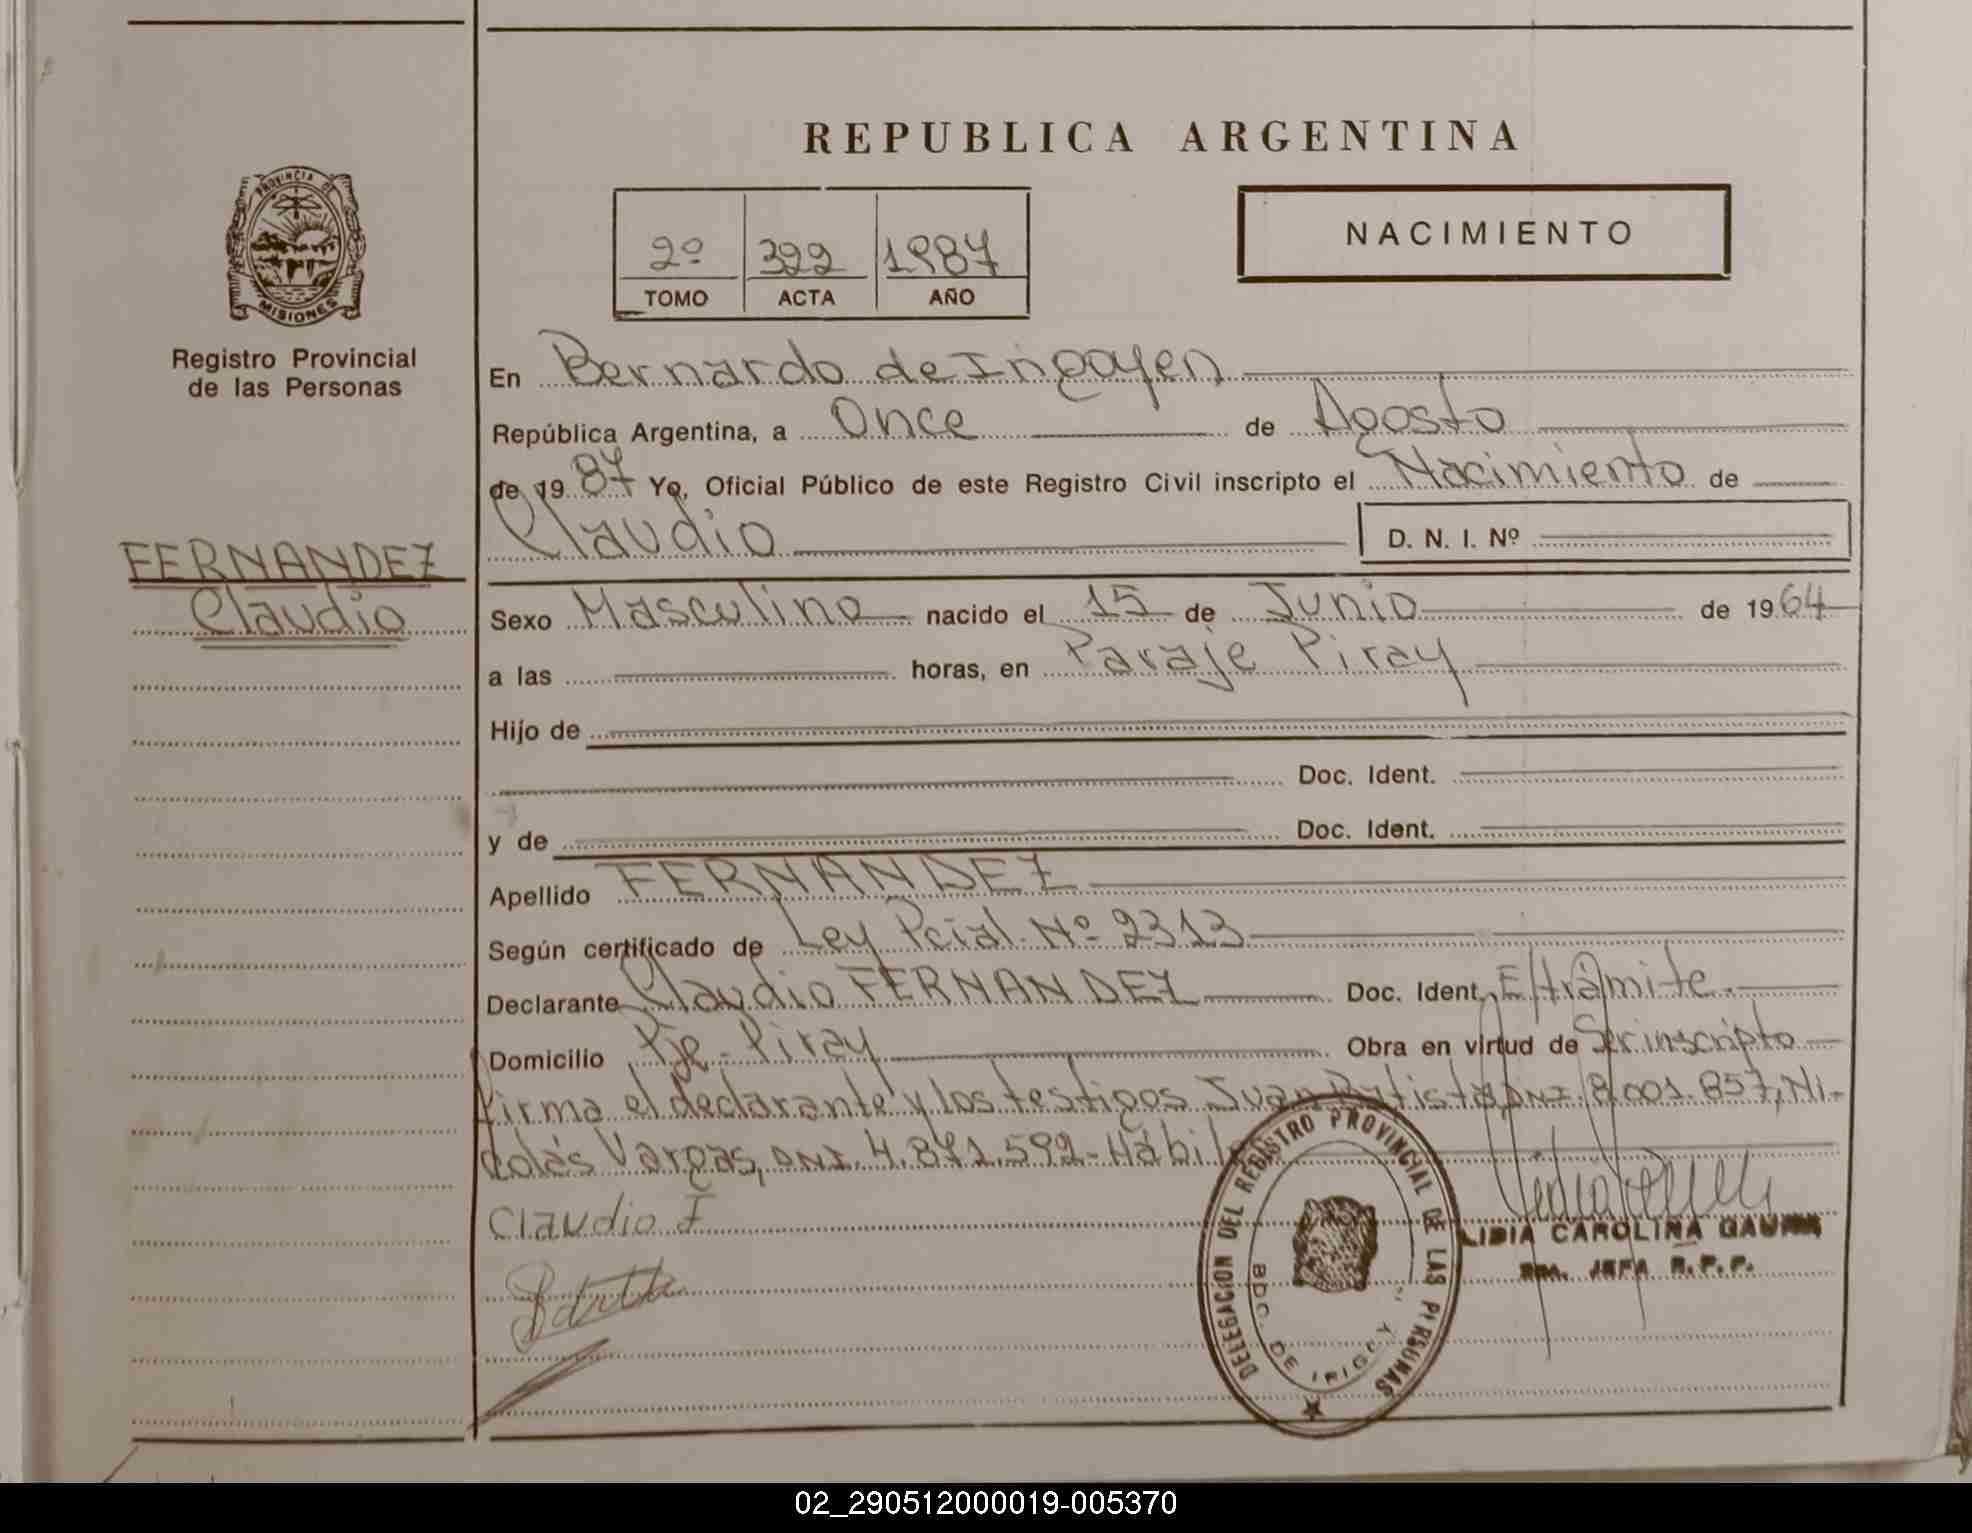 REPUBLICA ARGENTINA
PROVINCIA DE
MISIONES
Registro Provincial
de las Personas
2º 322 1987
TOMO ACTA AÑO
NACIMIENTO
En Bernardo de Irigoyen
República Argentina, a Once de Agosto
de 1987 Yo, Oficial Público de este Registro Civil inscripto el Nacimiento de
Claudio D. N. I. Nº
FERNANDEZ
Claudio
Sexo Masculino nacido el 15 de Junio de 1964
a las horas, en Paraje Piray
Hijo de
Doc. Ident.
y de Doc. Ident.
Apellido FERNANDEZ
Según certificado de Ley Pcial. Nº 2313
Declarante Claudio FERNANDEZ Doc. Ident. E/trámite
Domicilio Pje. Piray Obra en virtud de Ser inscripto
firma el declarante y los testigos Juan Batista, DNI. 8.001.857, Ni-
colás Vargas, DNI. 4.871.592 - Hábil
Claudio F
DELEGACION DEL REGISTRO PROVINCIAL DE LAS PERSONAS
BDO. DE IRIGOY
LIDIA CAROLINA
JEFA R.P.P.
02_290512000019-005370